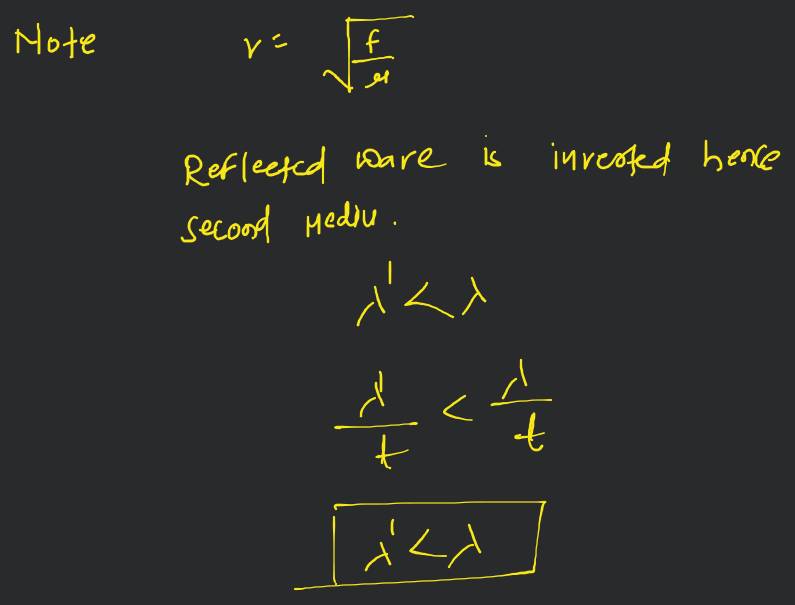 Note v = √(F/μ)
Reflected wave is inverted hence
second Mediu.
λ' < λ
λ'/t < λ/t
λ' < λ